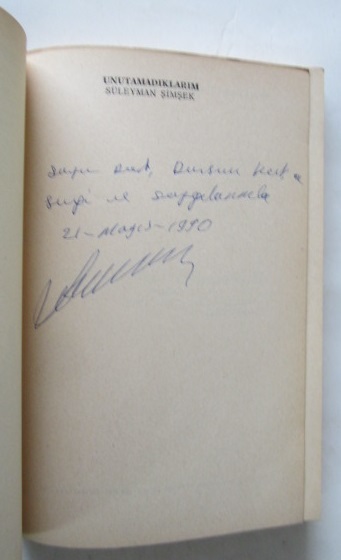 UNUTAMADIKLARIM
SÜLEYMAN ŞİMŞEK
Sayın Dost, Dursun
Sevgi ve Saygılarımla
21-Mayıs-1990